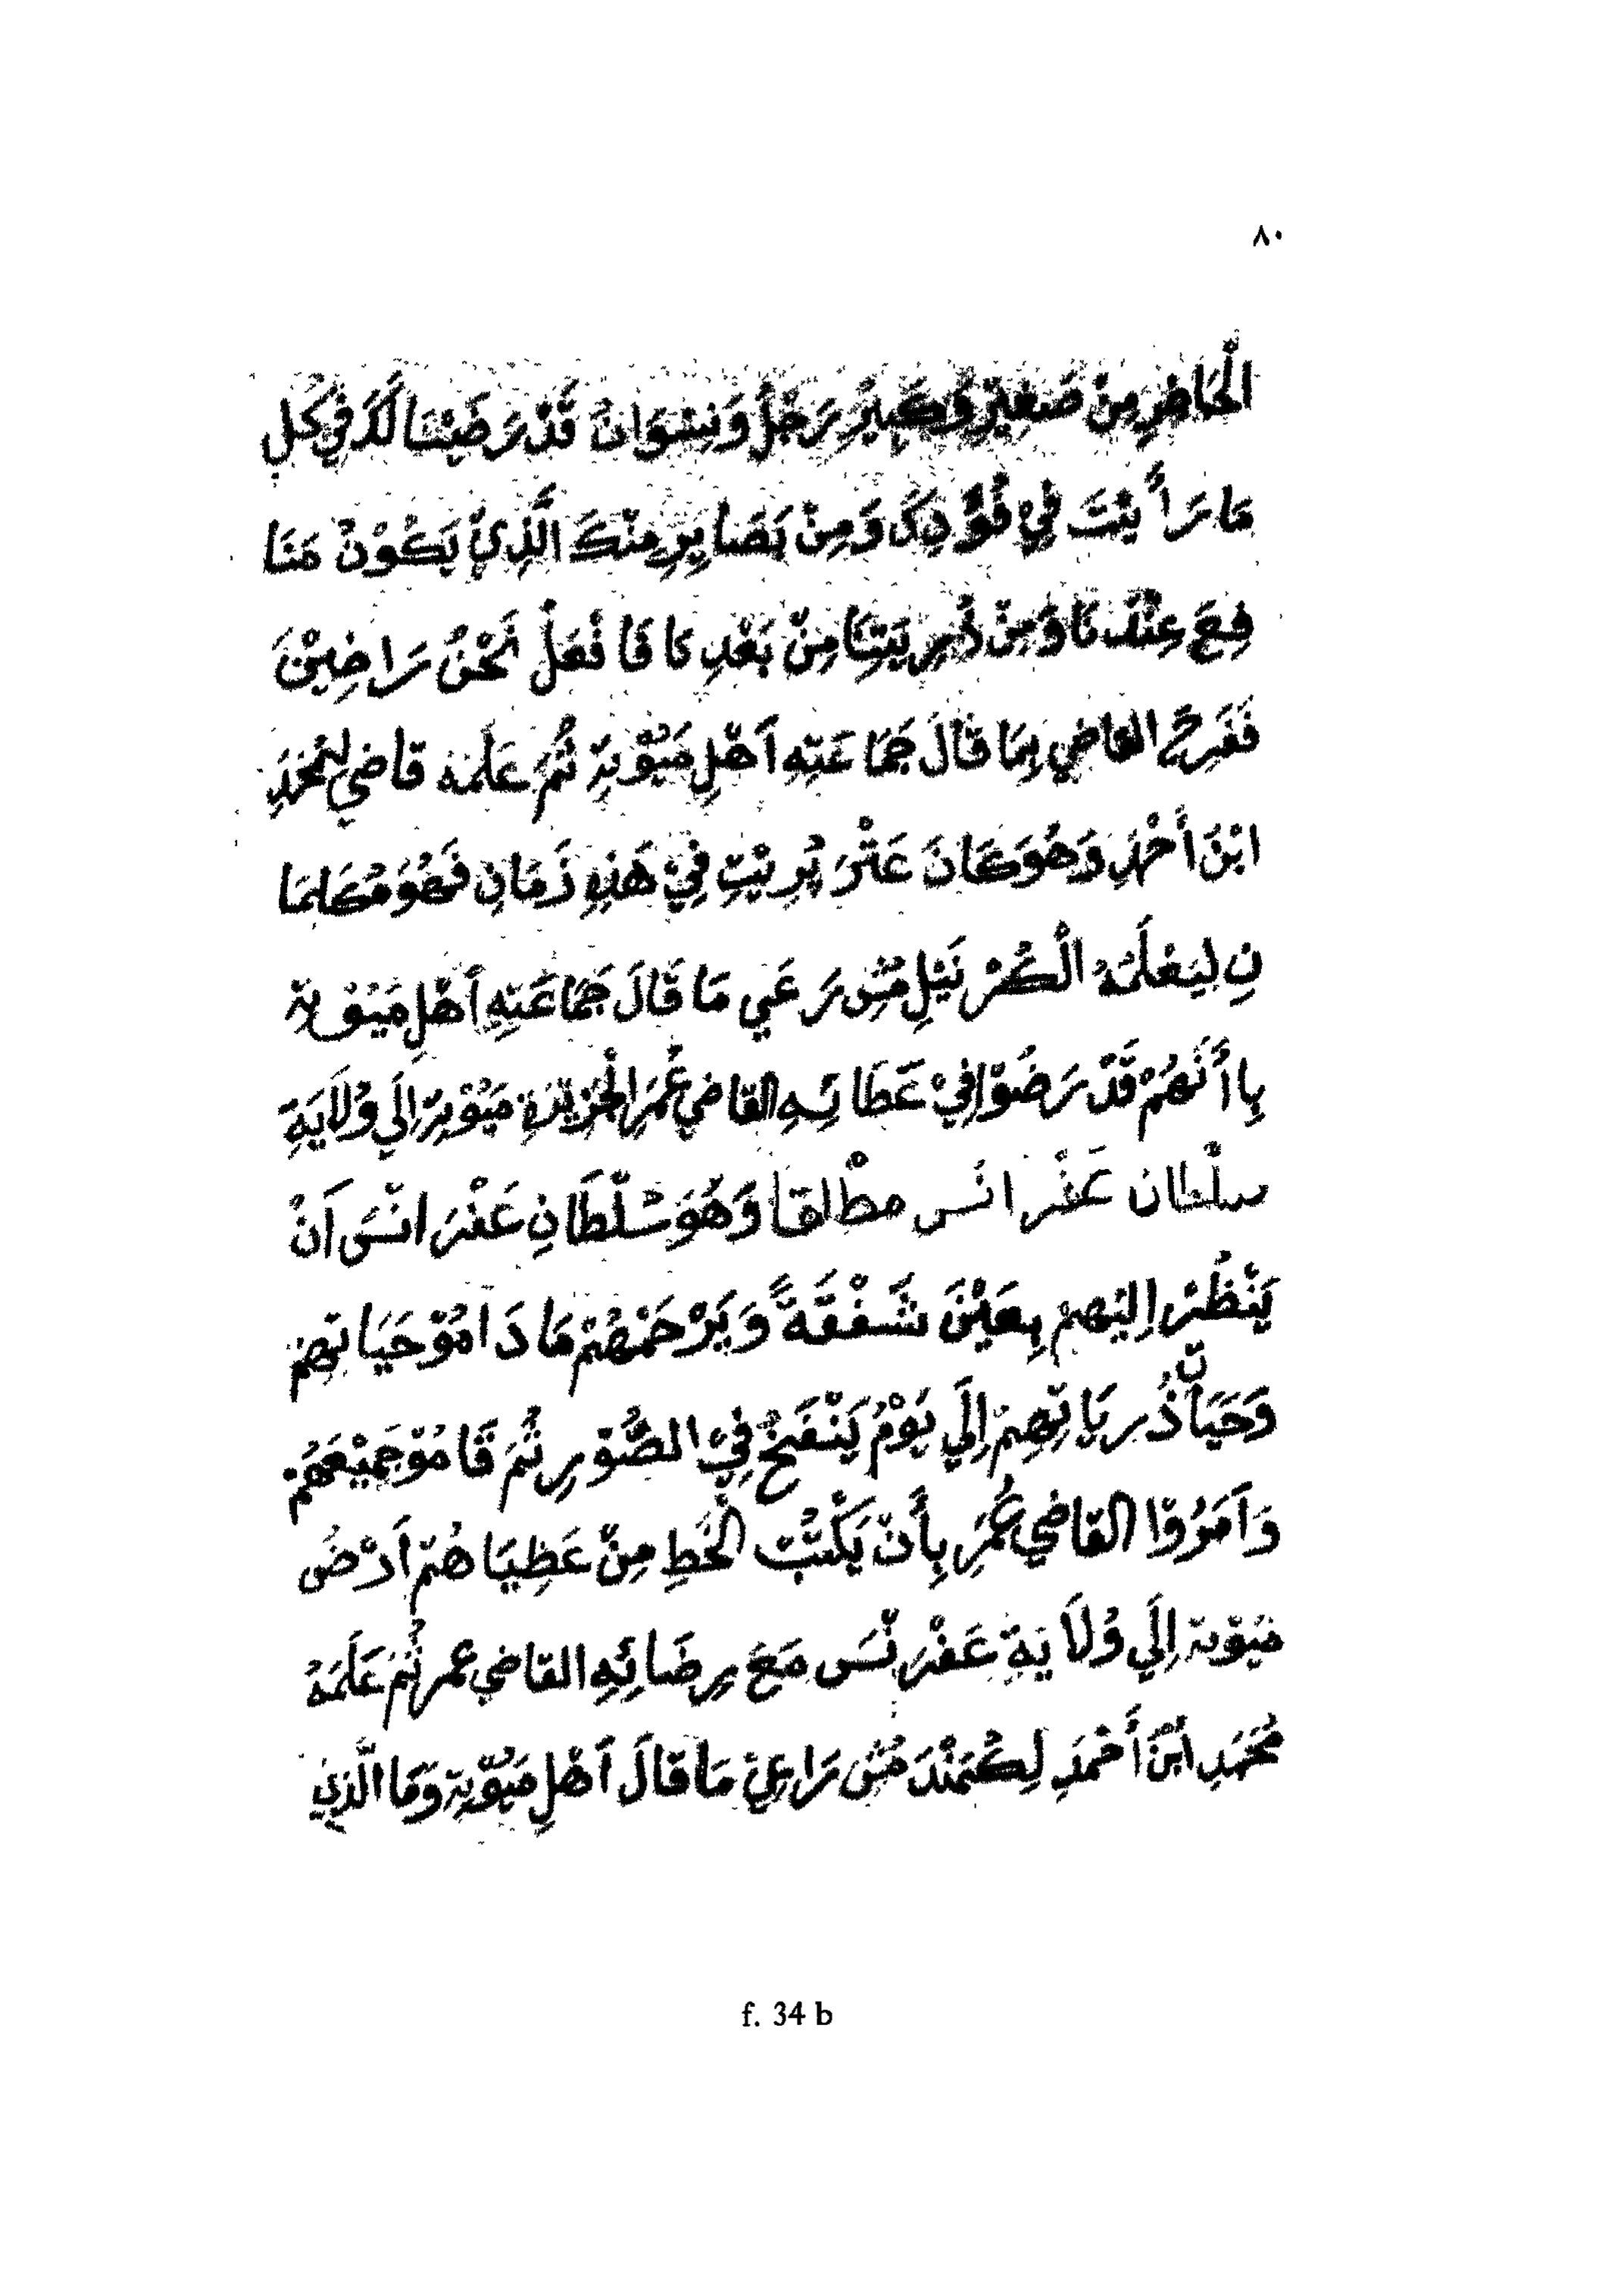 ٨٠
الْحَاضِرِ مِنْ صَغِيْرٍ وَكَبِيْرٍ رَجُلٌ وَنِسْوَانٌ قَدْ رَضَيْنَا لَكَ فِي كُلِ
مَا رَأَيْتَ فِيْ فُؤَدِكَ وَمِنْ بَصَايِرِ مِنْكَ الَّذِيْ يَكُوْنُ مَنَا
فِعَ عِنْدَنَا وَمِنْ ذُرِيَتِنَا مِنْ بَعْدِنَا فَافْعَلْ نَحْنُ رَاضِيْنَ
فَفَرِحَ القاضي بِمَا قَالَ جَمَاعَتِهِ أَهْلِ مَيُوْتِةِ ثُمَ عَلَمَه قاضي لِمُحَمَدِ
ابْنَ أَحْمَدِ وَهُوَ كَانَ عَنْتَرَ بُرِيْتِ فِيْ هَذِهِ زَمَانِ فَهُوَ مُكَلَمَا
نِ لِيَعْلَمَهُ الْكُرْنَيْلِ مُسْ رَعِي مَا قَالَ جَمَاعَتِهِ أَهْلِ مَيُوْتِة
بِاأَنَهُمْ قَدْ رَضُوْا فِيْ عَطَائِهِ القاضي عُمَرِ الْجَزِيْرَةِ مَيُوْتِة إِلَي وُلَايَةِ
سلْطان عَفْرانَس مطْلقا وَهُوَ سُلْطَانِ عَفْرَانْسَ أَنْ
يَنْظُرْ إِليْهِمْ بِعَيْنَ شَفْقَةً وَيَرْحَمْهُمْ مَا دَامُوْ حَيَاتِهِمْ
وَحَيَاةِ ذُرِيَاتِهِمْ إِلَي يَوْمُ يَنْفَخُ فِيْ الصُّوْرِ ثُمَ قَامُوْ جَمِيْعَهُمْ
وَأَمَرُوْا القاضي عُمَرِ بِأَنْ يَكْتُبْ الْخَطِ مِنْ عَطِيَاهُمْ أَرْضُ
مَيُوْتة إِلَي وُلَايَةِ عَفْرَنْسَ مَعَ رِضَائِهِ القاضي عمر ثُمَ عَلَمَهُ
مُحَمَدِ ابْنَ أَحْمَدِ لِكُمَنْدَ مُسْ رَاعِيْ مَا قَالَ أَهْلِ مَيُوْتِة وَمَا الَّذِيْ
f. 34 b